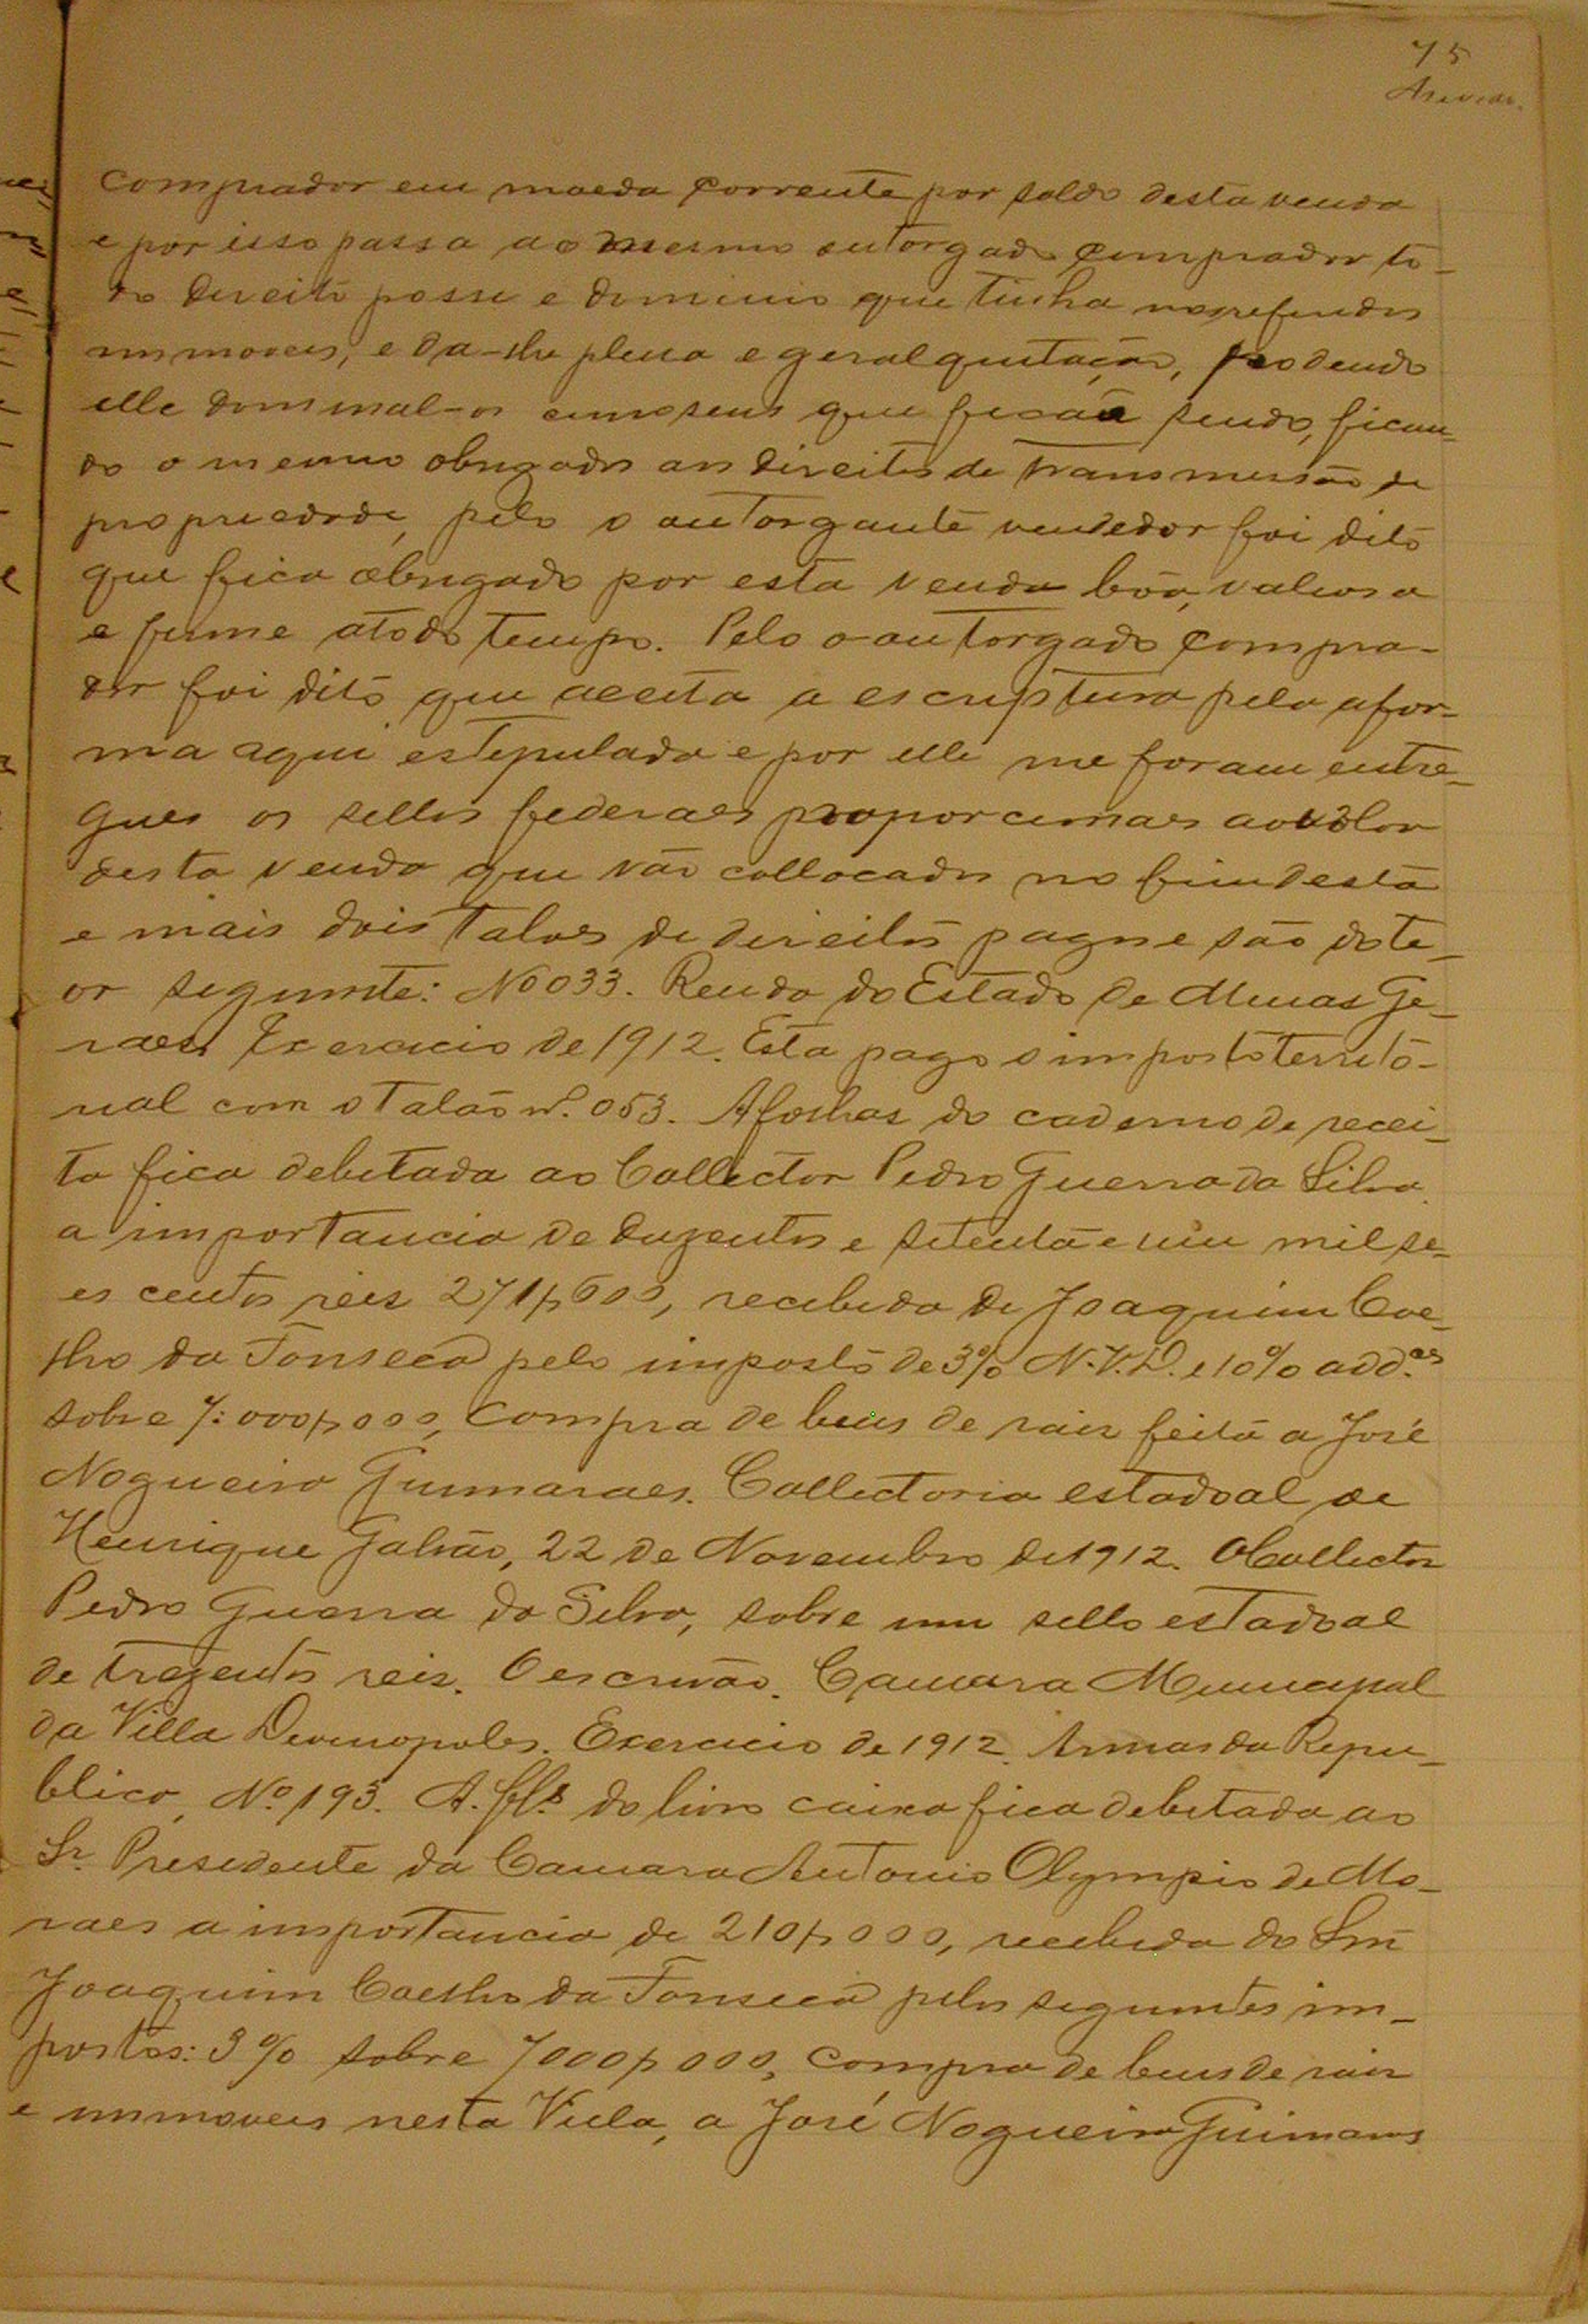 75
Azevedo.
comprador em moeda corrente por saldo desta venda
e por isso passa ao mesmo outorgado comprador to-
do direito posse e dominio que tinha nos referidos
immoveis, e da-lhe plena e geral quitação, podendo
elle dominal-os como seus que ficão sendo, fican-
do o mesmo obrigado aos direitos de transmissão de
propriedade, pelo o outorgante vendedor foi dito
que fica obrigado por esta venda bôa, valiosa
e firme atodo tempo. Pelo o outorgado compra-
dor foi dito que aceita a escriptura pela a for-
ma aqui estipulada e por elle me foram entre-
gues os sellos federaes proporcionaes ao valor
desta venda que vão collocados no fim desta
e mais dois talões de direitos pagos e são do te-
or seguinte: No 033. Renda do Estado de Minas Ge-
raes Exercicio de 1912. Esta pago o imposto territo-
rial com o Talão nº. 053. A folhas do caderno de recei-
ta fica debitada ao Collector Pedro Guerra da Silva,
a importancia de duzentos e setenta e um mil se-
es centos reis 271$600, recebida de Joaquim Coe-
lho da Fonseca pelo imposto de 3% N.V.D. e 10% add.es
sobre 7:000$000, compra de bens de raiz feita a José
Nogueira Guimaraes. Collectoria estadoal de
Henrique Galvão, 22 de Novembro de 1912. O Collector
Pedro Guerra da Silva, sobre um sello estadoal
de trezentos reis. O escrivão. Camara Municipal
da Villa Divinopolis. Exercicio de 1912. Armas da Repu-
blica, Nº 193. A. fls do livro caixa fica debitada ao
Sr. Presidente da Camara Antonio Olympio de Mo-
raes a importancia de 210$000, recebida do Snr
Joaquim Coelho da Fonseca pelos seguintes im-
postos: 3% sobre 7000$000, compra de bens de raiz
e immoveis nesta Villa, a José Nogueira Guimarães